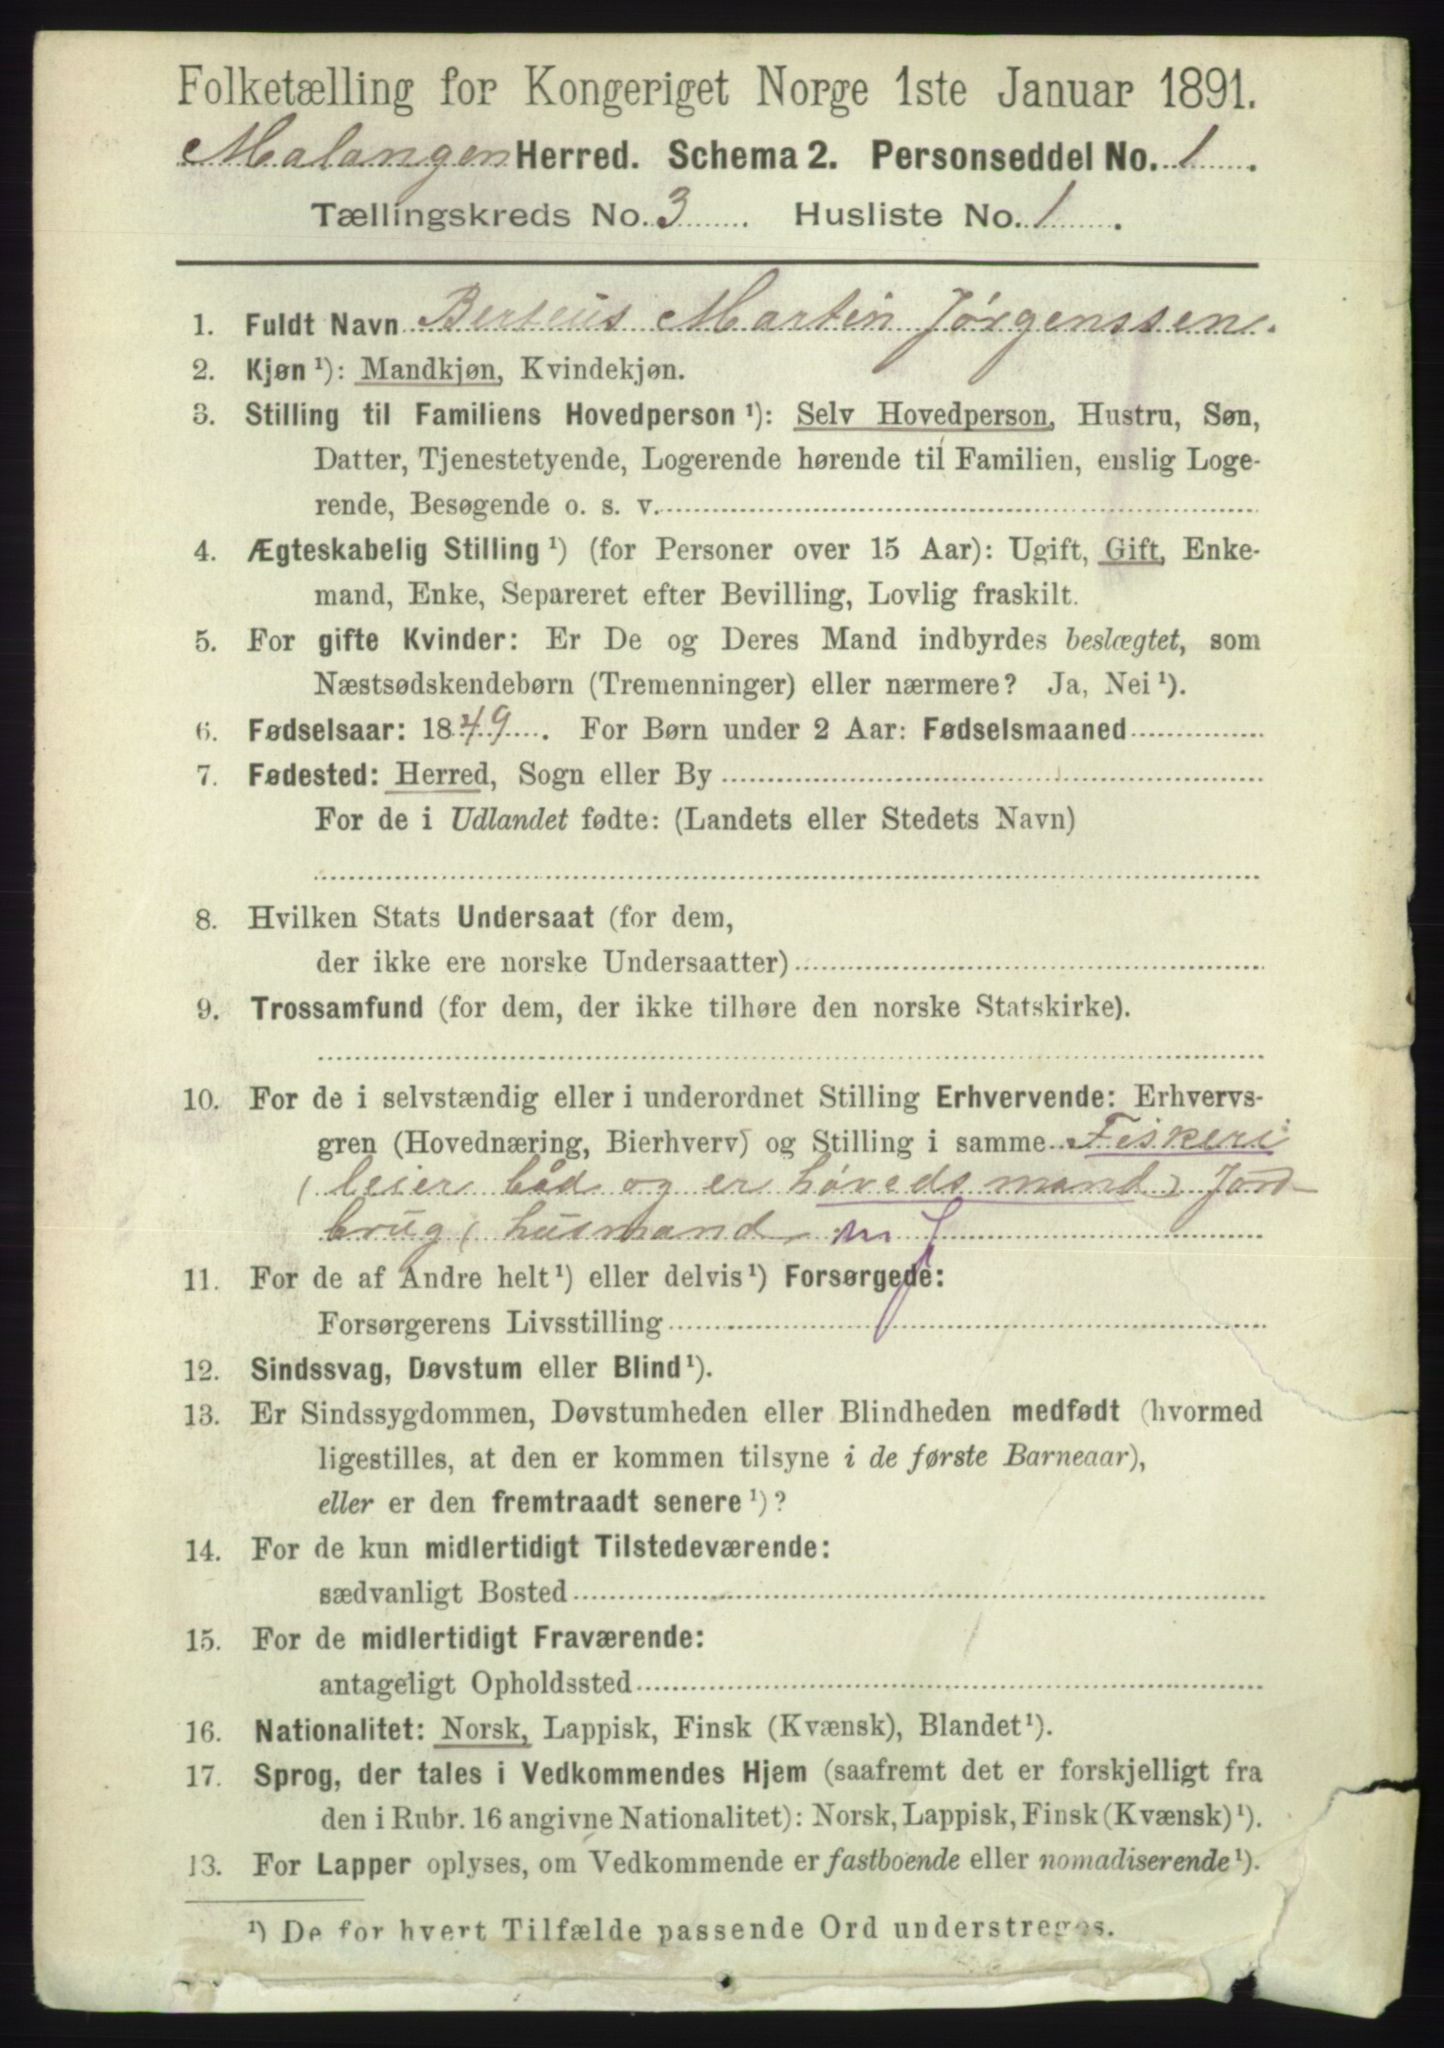 Folketælling for Kongeriget Norge 1ste Januar 1891.
Malangen Herred. Schema 2. Personseddel No. 1.
Tællingskreds No. 3. Husliste No. 1.
1. Fuldt Navn Berteus Martin Jørgenssen.
2. Kjøn ¹): Mandkjøn, Kvindekjøn.
3. Stilling til Familiens Hovedperson ¹): Selv Hovedperson, Hustru, Søn,
Datter, Tjenestetyende, Logerende hørende til Familien, enslig Loge-
rende, Besøgende o. s. v.
4. Ægteskabelig Stilling ¹) (for Personer over 15 Aar): Ugift, Gift, Enke-
mand, Enke, Separeret efter Bevilling, Lovlig fraskilt.
5. For gifte Kvinder: Er De og Deres Mand indbyrdes beslægtet, som
Næstsødskendebørn (Tremenninger) eller nærmere? Ja, Nei ¹).
6. Fødselsaar: 1849. For Børn under 2 Aar: Fødselsmaaned
7. Fødested: Herred, Sogn eller By
For de i Udlandet fødte: (Landets eller Stedets Navn)
8. Hvilken Stats Undersaat (for dem,
der ikke ere norske Undersaatter)
9. Trossamfund (for dem, der ikke tilhøre den norske Statskirke).
10. For de i selvstændig eller i underordnet Stilling Erhvervende: Erhvervs-
gren (Hovednæring, Bierhverv) og Stilling i samme Fiskeri
(leier båd og er høvedsmand) Jord-
brug (husmand m j
11. For de af Andre helt ¹) eller delvis ¹) Forsørgede:
Forsørgerens Livsstilling
12. Sindssvag, Døvstum eller Blind ¹).
13. Er Sindssygdommen, Døvstumheden eller Blindheden medfødt (hvormed
ligestilles, at den er kommen tilsyne i de første Barneaar),
eller er den fremtraadt senere ¹)?
14. For de kun midlertidigt Tilstedeværende:
sædvanligt Bosted
15. For de midlertidigt Fraværende:
antageligt Opholdssted
16. Nationalitet: Norsk, Lappisk, Finsk (Kvænsk), Blandet ¹).
17. Sprog, der tales i Vedkommendes Hjem (saafremt det er forskjelligt fra
den i Rubr. 16 angivne Nationalitet): Norsk, Lappisk, Finsk (Kvænsk) ¹).
13. For Lapper oplyses, om Vedkommende er fastboende eller nomadiserende ¹).
¹) De for hvert Tilfælde passende Ord understreges.